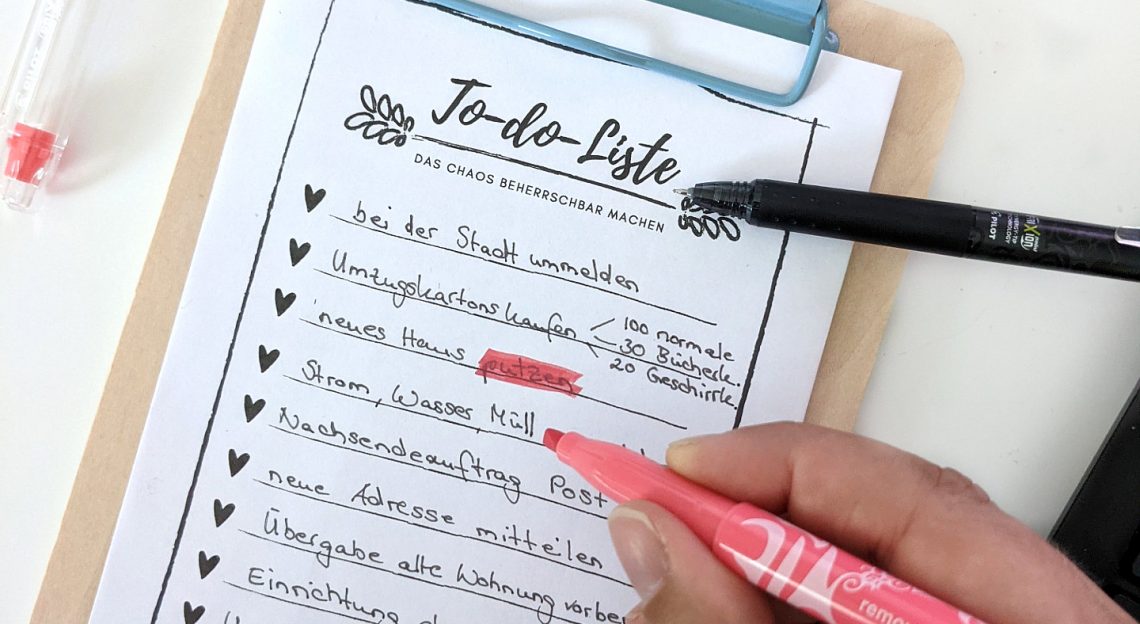 To-do-Liste
DAS CHAOS BEHERRSCHBAR MACHEN
bei der Stadt ummelden
Umzugskartons kaufen
100 normale
30 Bücherk.
20 Geschirrk.
neues Haus putzen
Strom, Wasser, Müll
Nachsendeauftrag Post
neue Adresse mitteilen
Übergabe alte Wohnung
Einrichtung
PILOT
remo